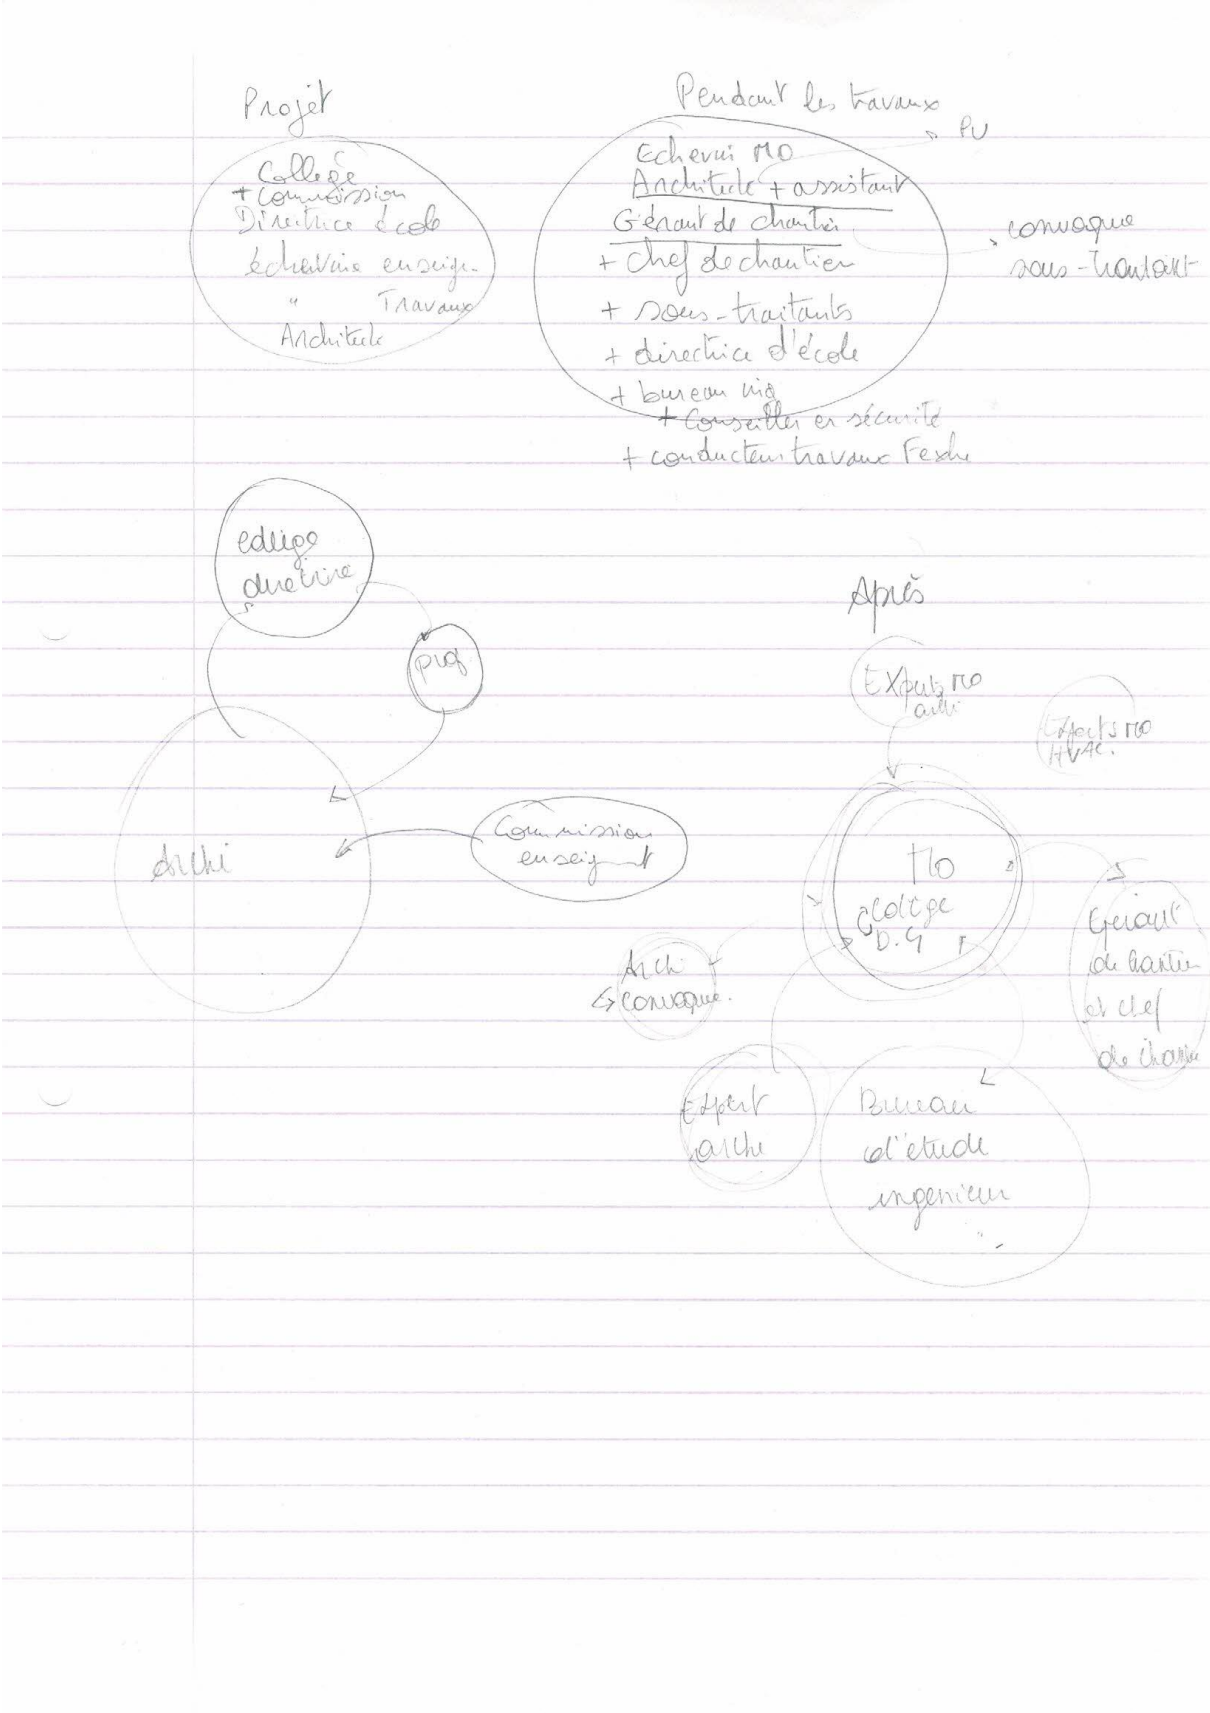 Projet
Collège
+ Commission
Directrice école
échevine enseign.
" Travaux
Architecte
Pendant les travaux
PV
Echevin MO
Architecte + assistant
Gérant de chantier
+ chef de chantier
+ sous-traitants
+ directrice d'école
+ bureau
+ Conseiller en sécurité
+ conducteur travaux
convoque
sous-traitant
collège
directrice
prof
Archi
Commission
enseignt
Après
Experts MO
archi
Experts MO
HVAC.
MO
Collège
D.G
Archi
convoque.
Gérant
de chantier
et chef
de chantier
Expert
archi
Bureau
d'étude
ingénieur